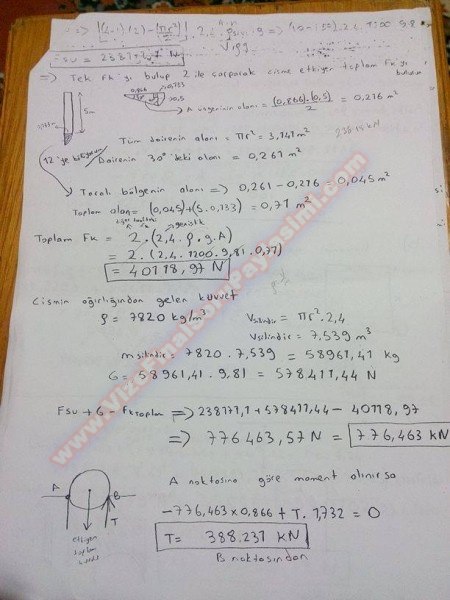 Fsu = 238171,1 N
=> Tek Fk yı bulup 2 ile çarparak cisme etkiyen toplam Fk yı
0,866
0,133
0,5
5m
A üçgeninin alanı = (0,866).(0,5) / 2 = 0,216 m²
Tüm dairenin alanı = πr² = 3,141 m²
12'ye bölünür
Dairenin 30° deki alanı = 0,261 m²
Taralı bölgenin alanı => 0,261 - 0,216 = 0,045 m²
Toplam alan = (0,045)+(5.0,133) = 0,71 m²
genişlik
Toplam Fk = 2.(2,4.ρ.g.A)
= 2.(2,4.1200.9,81.0,71)
= 40118,97 N
Cismin ağırlığından gelen kuvvet
ρ = 7820 kg/m³
Vsilindir = πr².2,4
Vsilindir = 7,539 m³
m silindir = 7820.7,539 = 58961,41 kg
G = 58961,41.9,81 = 578411,44 N
Fsu + G - Fk toplam => 238171,1 + 578411,44 - 40118,97
=> 776463,57 N = 776,463 kN
A noktasına göre moment alınırsa
A
B
T
etkiyen
toplam
kuvvet
-776,463x0,866 + T.1,732 = 0
T = 388.231 kN
B noktasından
www.VizeFinalSoruPaylasimi.com